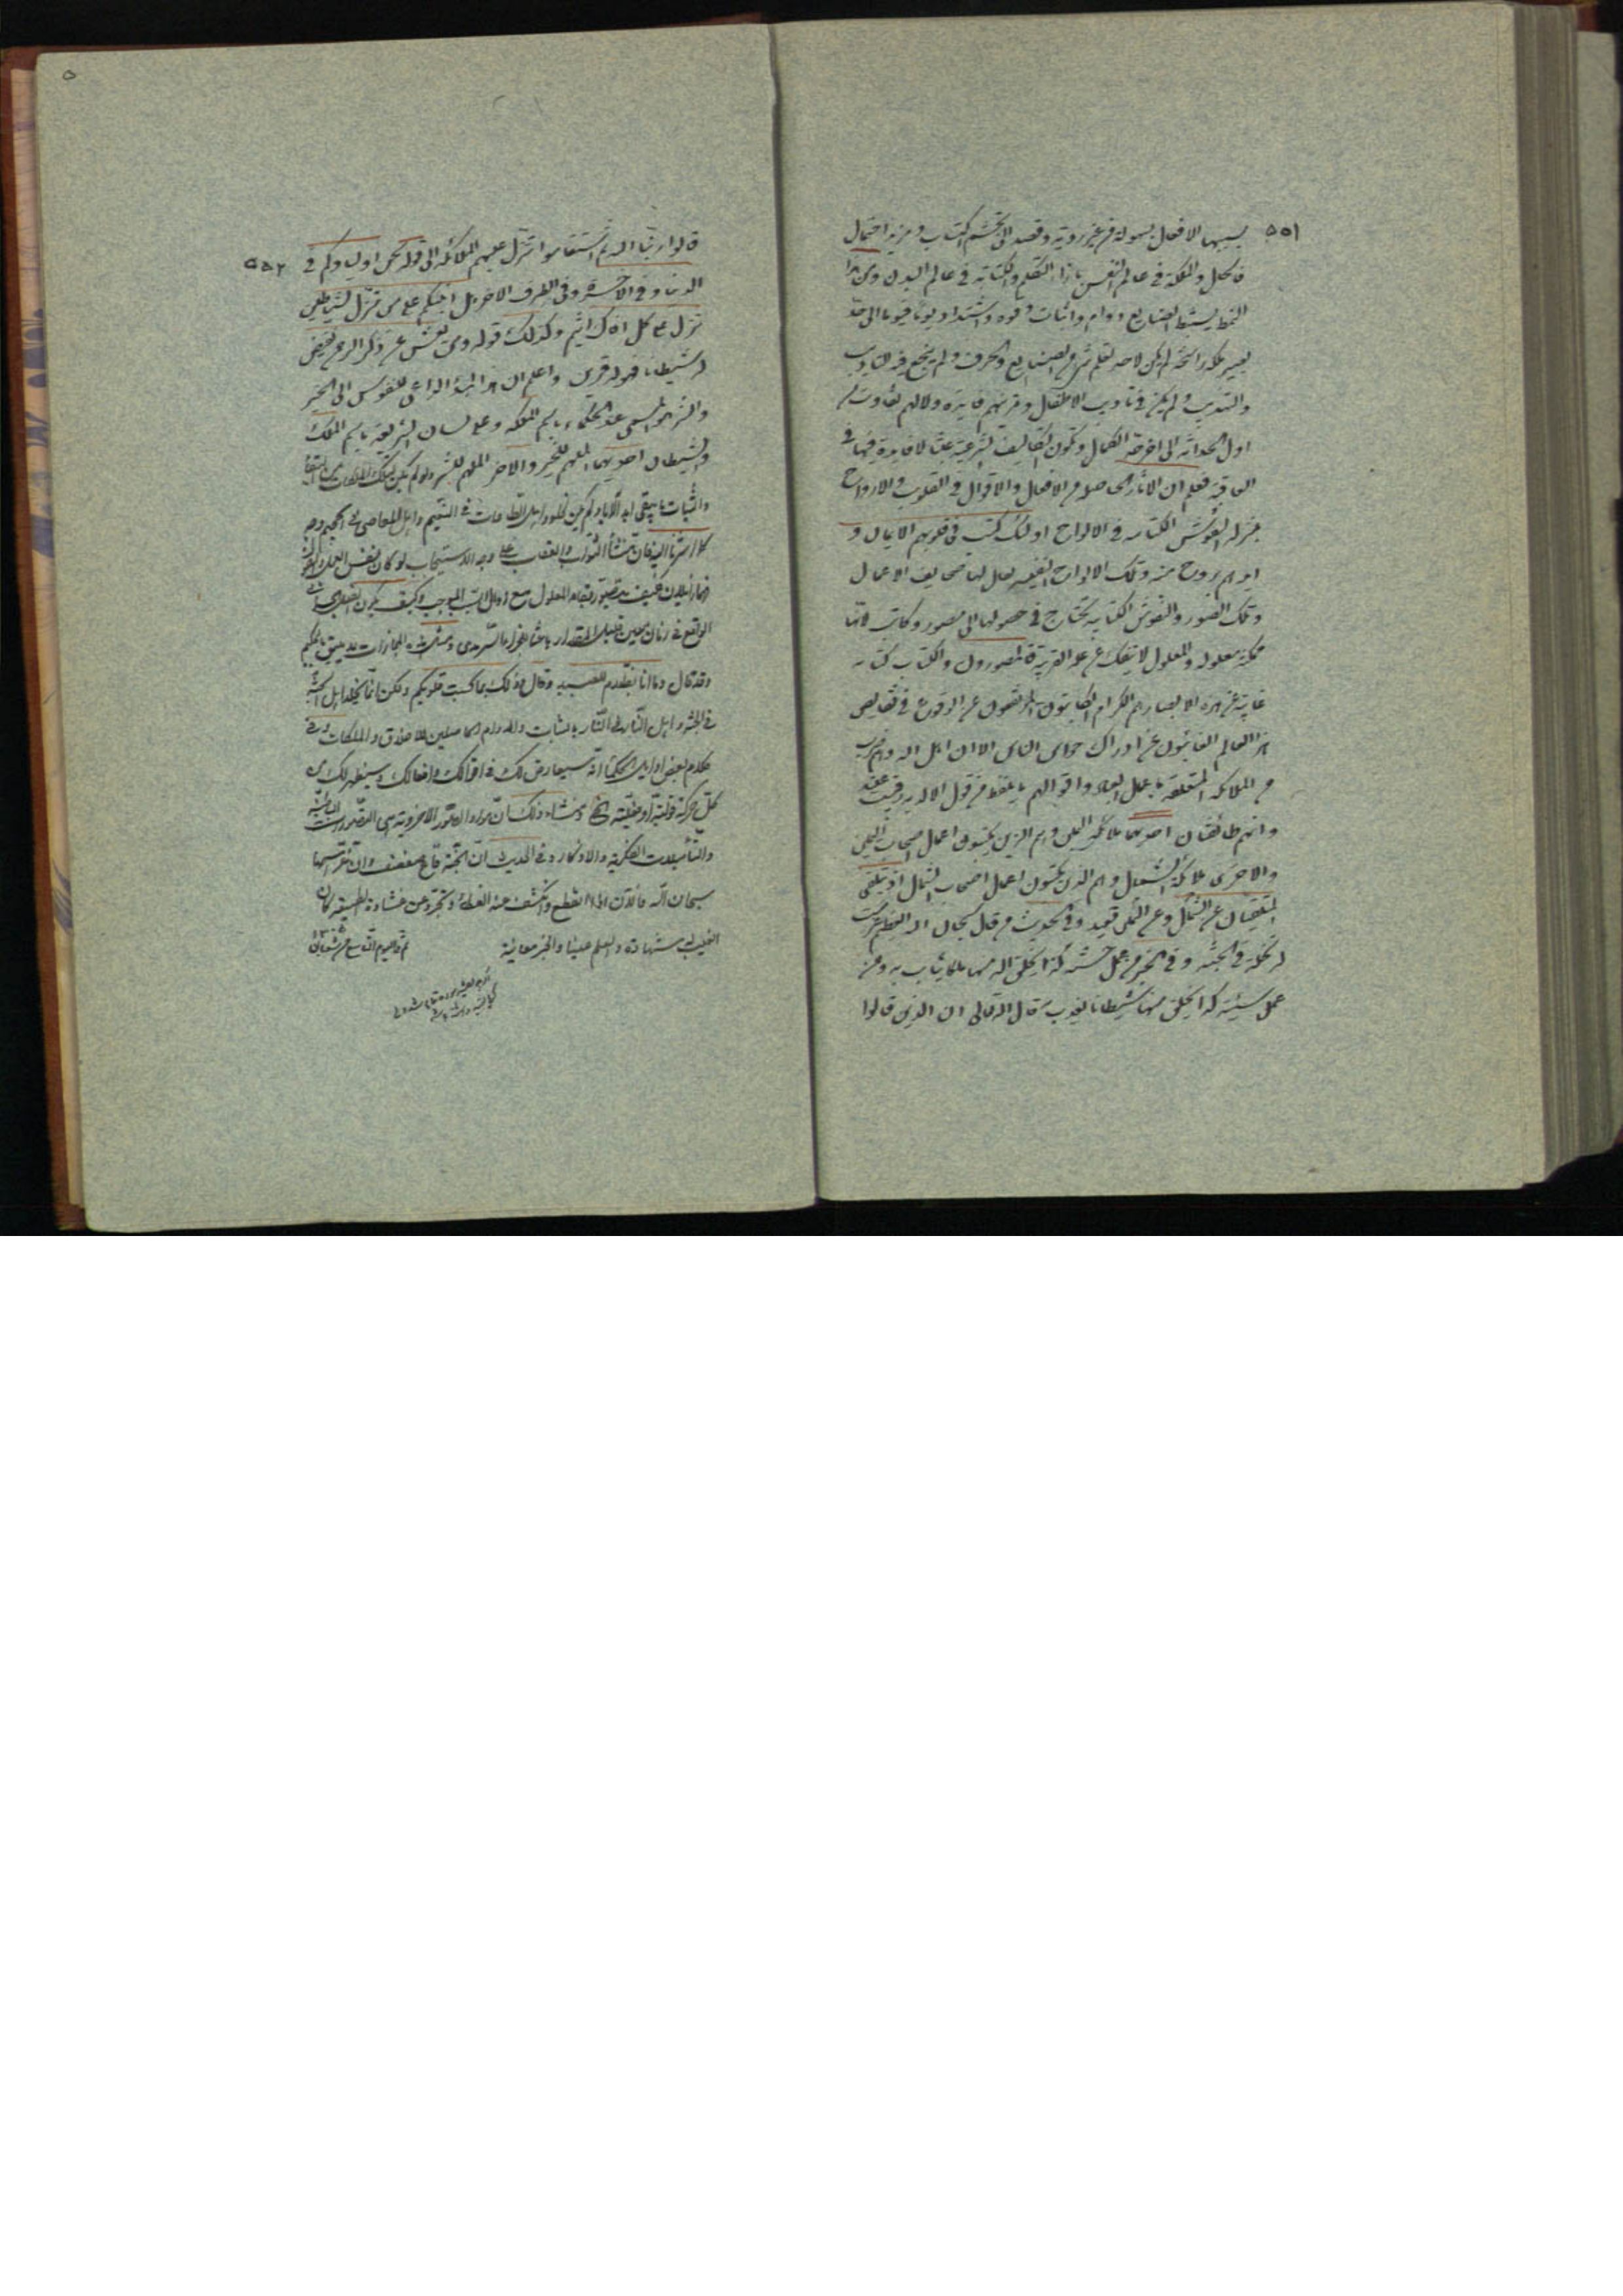 ٥٥١
بسببها الافعال بسهولة من غير روية وقصد الى تجشم اكتساب ومزيد اعتمال
فالحال والملكة في عالم النفس بازاء التكلم والكتابة في عالم البدن ومن هذا
النمط يستنبط الصنايع ودوام واثبات وقوة واشتداد يوما فيوما الى حد
يصير ملكة راسخة لم يكن لاحد تعلم شيء من الصنايع والحرف ولم ينجع فيه التاديب
والتهذيب ولم يكن في تاديب الاطفال وتمرينهم فايدة ولا لهم تفاوت من
اول الحداثة الى اخر حد الكمال وتكون التكاليف الشرعية عبثا لا فايدة فيها في
العاقبة فعلم ان الاثار الحاصلة من الافعال والاقوال في القلوب والارواح
بمنزلة النقوش الكتابية في الالواح اولئك كتب في قلوبهم الايمان و
ايدهم بروح منه وتلك الالواح النفسية يقال لها صحايف الاعمال
وتلك الصور والنقوش الكتابية يحتاج في حصولها الى مصور وكاتب لانها
ممكنة معلولة والمعلول لا ينفك عن علته القريبة فالمصورون والكتاب كتابة
غايبة عن هذه الابصار هم الكرام الكاتبون المرتفعون عن الوقوع في نقايص
هذا العالم الغائبون عن ادراك حواس الناس الا ان اهل الله وهم ضرب
من الملائكة المتعلقة باعمال العباد واقوالهم ما يلفظ من قول الا لديه رقيب عتيد
وانهم طائفتان احديهما ملائكة اليمين وهم الذين يكتبون اعمال اصحاب اليمين
والاخرى ملائكة الشمال وهم الذين يكتبون اعمال اصحاب الشمال اذ يتلقى
المتلقيان عن الشمال وعن اليمين قعيد وفي الحديث من قال سبحان الله العظيم غرست
له نخلة في الجنة وفي الخبر من عمل حسنة كذا يخلق الله منها ملكا يثاب به ومن
عمل سيئة كذا يخلق منها شيطانا يعذب به قال الله تعالى ان الذين قالوا
٥٥٢
قالوا ربنا الله ثم استقاموا تتنزل عليهم الملائكة الى قوله نحن اولياؤكم في
الدنيا وفي الاخرة وفي الطرف الاخر هل انبئكم على من تنزل الشياطين
تنزل على كل افاك اثيم وكذلك قوله ومن يعش عن ذكر الرحمن نقيض
له شيطانا فهو له قرين واعلم ان هذا المبدأ الداعي للنفوس الى الخير
والشر هو المسمى عند الحكماء باسم الملكة وعلى لسان الشريعة باسم الملك
والشيطان احديهما الملهم للخير والاخر الملهم للشر ولو لم يكن لتلك الملكات من البقاء
والثبات ما يبقى ابد الآباد لم يكن لخلود اهل الطاعات في النعيم واهل المعاصي في الجحيم وجه
كما اشرنا اليه فان منشأ الثواب والعقاب على وجه الاستيجاب لو كان نفس العمل والقول
فهما زايلان فكيف يتصور بقاء المعلول مع زوال السبب الموجب وكيف يكون الفعل الجسماني
الواقع في زمان معين قليل المقدار باعثا للجزاء السرمدي ومثل هذه المجازات لا يليق بالحكيم
وقد قال وما انا بظلام للعبيد وقال ذلك بما كسبت قلوبكم ولكن انما يخلد اهل الجنة
في الجنة واهل النار في النار بالثبات والدوام الحاصلين للاخلاق والملكات وفي
كلام بعض اوايل الحكماء انه سيعارض لك في اقوالك وافعالك وسيظهر لك من
كل حركة قولية او فعلية الخ ومنشاء ذلك ان مواد الصور الاخروية هي التصورات الباطنية
والتأملات الفكرية والاذكار وفي الحديث ان الجنة قاع صفصف وان غراسها
سبحان الله فالانسان اذا انقطع وانكشف عنه الغطاء وتجرد عن غشاوة الطبيعة كان
الغيب له شهادة والعلم عينا والخبر معاينة
تم في اليوم التاسع من شعبان